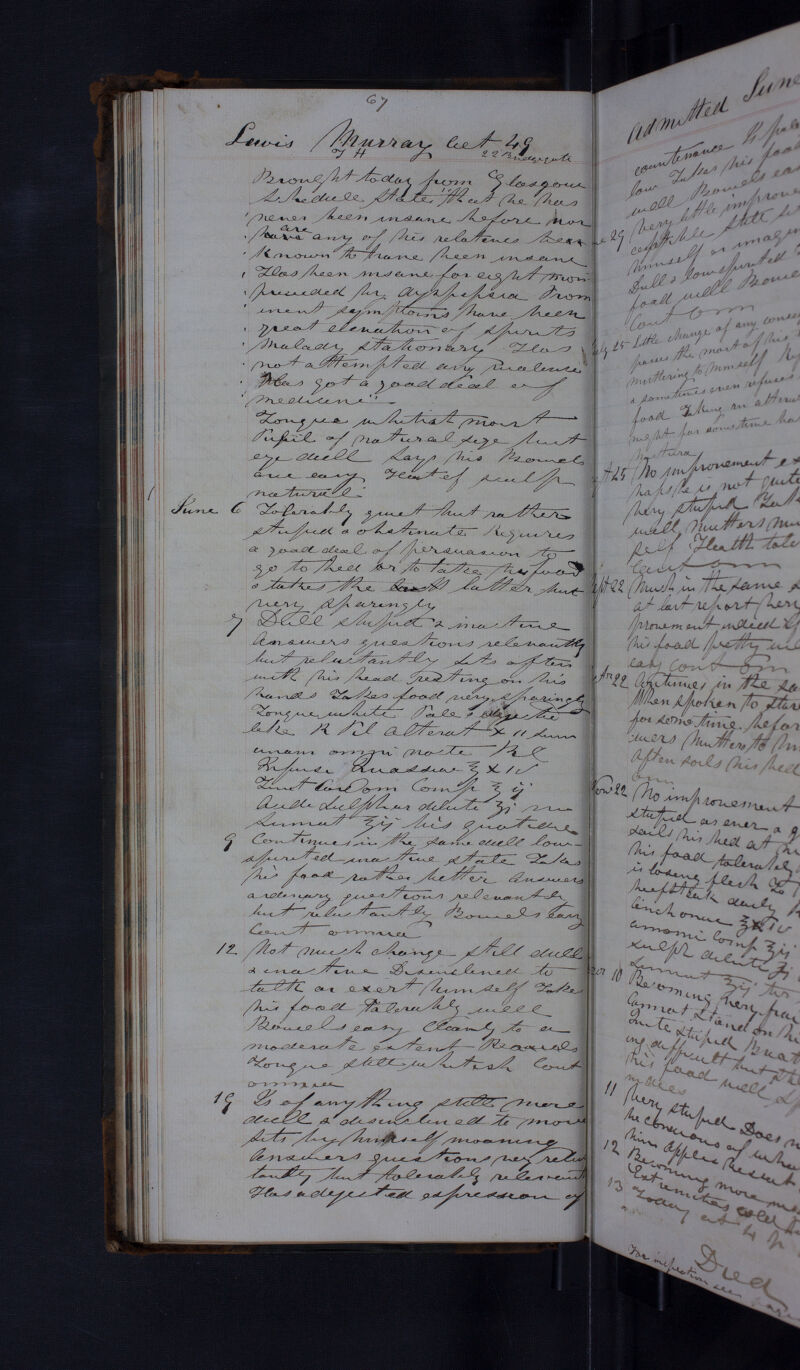 67
Lewis Murray aet 49
T H 22 Bridgegate
Brought today from Glasgow
Schedule states "that he has
never been insane before nor
are any of his relatives
known to have been insane
Has been insane for eight
preceded by dyspepsia Prom
inent symptoms have been
great elevation of spirits
Malady stationary Has
not attempted any violence
Has got a good deal of
medicine"
Tongue whitish moist
Pupil of natural size but
eye dull Says his Bowels
are easy Heat of scalp
natural
June 6 Tolerably quiet but rather
stupid & obstinate Requires
a good deal of persuasion to
go to bed or to take his food
& takes the latter but
very sparingly
7 Dull stupid & inactive
Answers questions relevantly
but reluctantly Sits often
with his head resting on his
hands Takes food very sparingly
Tongue white Pale & dyspeptic
like R Pil alterat X 11 Sum
unam omni nocte R
Infusi Quassiae ℥ X IV
Tinct Cardam Comp ℥ ij
Acidi Sulphur dilute ʒj m
Sumat ℥ij bis quotidie
9 Continues in the same dull low-
spirited inactive state Takes
his food rather better Answers
ordinary questions relevantly
but reluctantly Bowels easy
Cont omnia
12 Not much change still dull
& inactive Disinclined to
talk or exert himself Takes
his food tolerably well
Bowels easy Cleanly to a
moderate extent
Tongue still whitish Cont
omnia
19 Is if anything still more
dull & disinclined to move
Sits by himself moaning
Answers questions very reluc
tantly but tolerably relevant
Has a dejected expression of
Admitted June
countenance Is pale
low Takes his food
well Bowels easy
29 Very little improve
himself or imagin
Dull & low spirited
food well Bowels
Cont om
25 Little change of any conseq
passes the most of his
muttering to himself
& sometimes even refuses
food Taking an alterat
night for some time has
25 No improvement ex
haps he is not quite
very stupid Takes
well Mutters
self Health tole
Cont om
Sept 22 Much in the same
at last report Very
provement indeed
his food pretty well
easy Cont om
22 Continues in the sa
When spoken to stare
for some time before
swers Mutters to him
often soils his bed
om
Nov 22 No improvement
stupid as ever
soils his bed at
his food tolerably
is losing flesh To
beefsteak daily
Cinchonae ℥ X IV
amomi Comp ℥ij
sulph dilute ʒj
Sumat ℥ij
10 Becoming very
Cannot stand on
Quite stupid
ing difficult but
his food well
11 Very stupid Does n
be conscious of what
him
12 Becoming more
Extremities cold
13 Today at 4 p
Died
For inspection see page